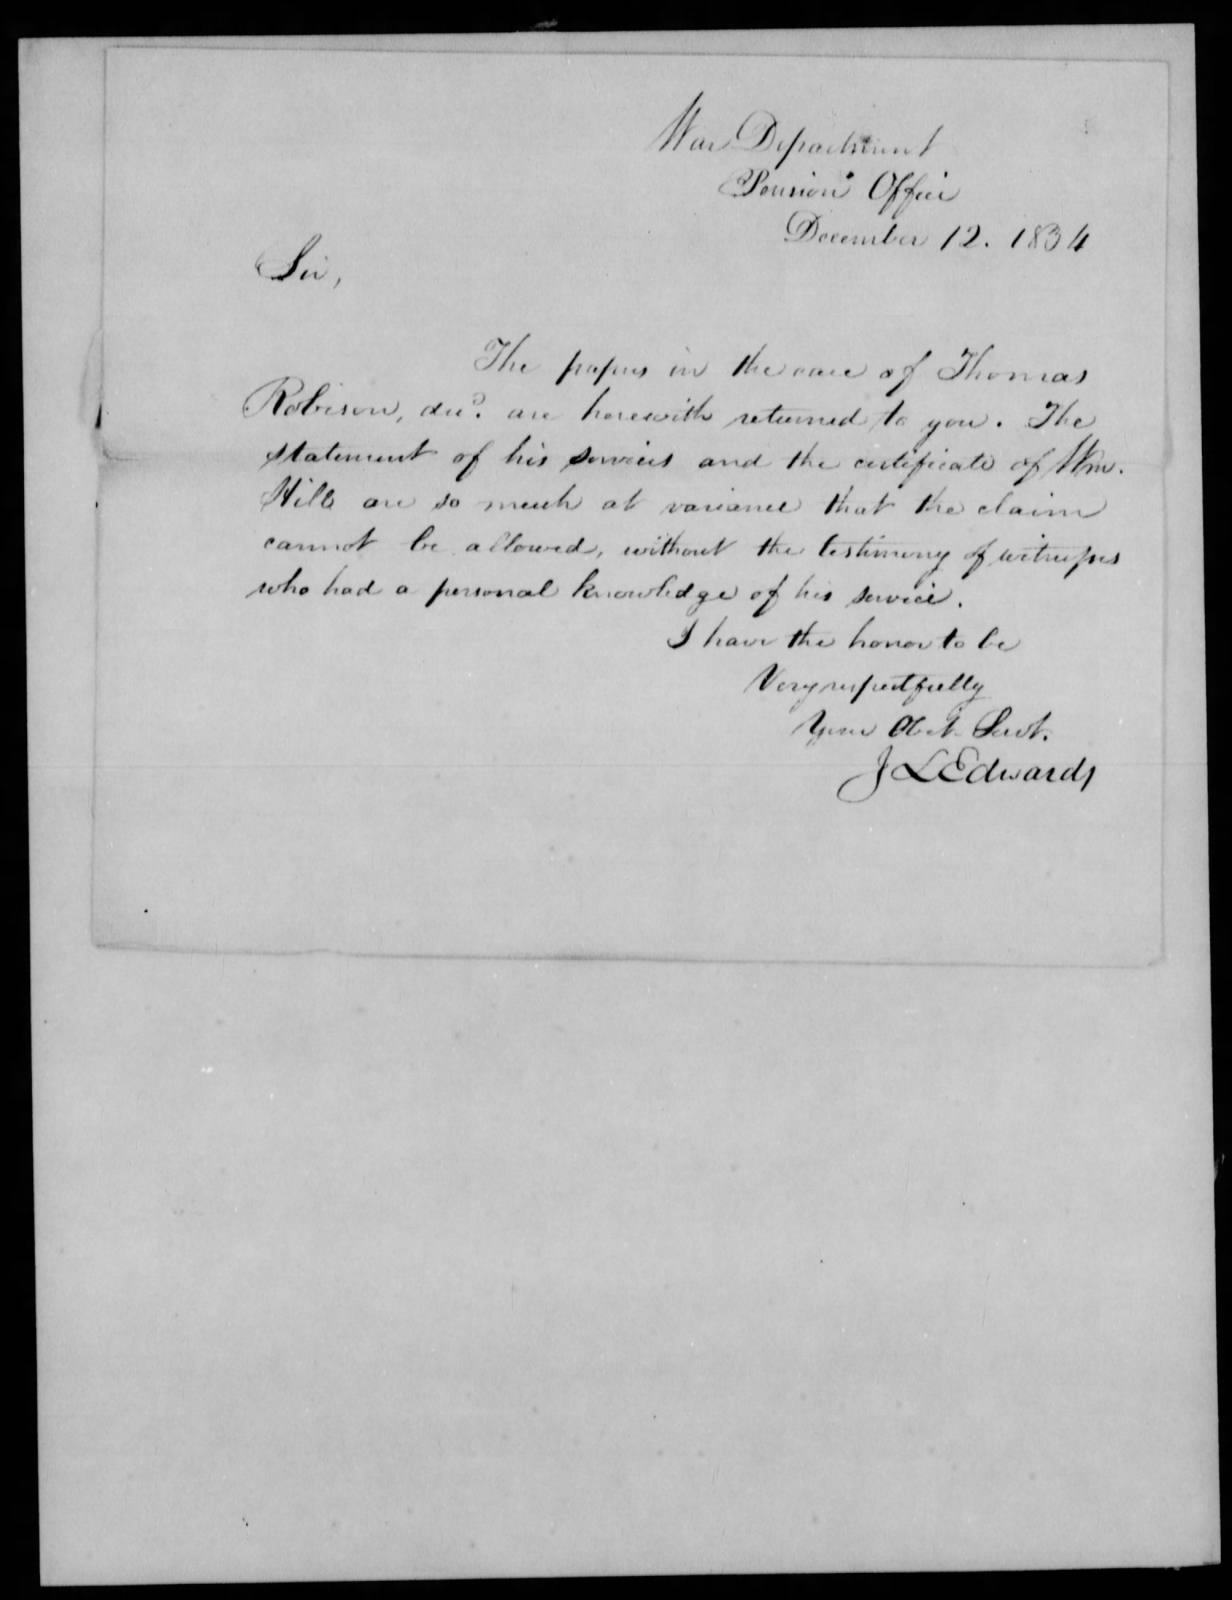 War Department
Pension Office
December 12. 1834
Sir,
The papers in the case of Thomas
Robison, decd. are herewith returned to you. The
statement of his services and the certificate of Wm.
Hill are so much at variance that the claim
cannot be allowed, without the testimony of witnesses
who had a personal knowledge of his service.
I have the honor to be
Very respectfully
Your Obt. Servt.
J L Edwards